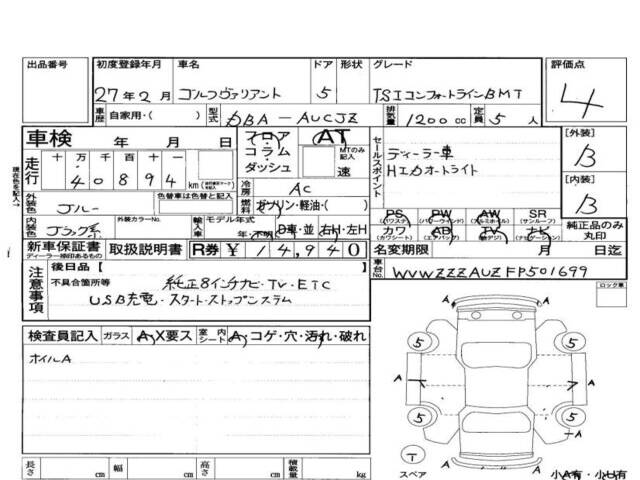 出品番号 初度登録年月 車名 ドア 形状 グレード 評価点
27年2月 ゴルフヴァリアント 5 TSIコンフォートラインBMT 4
車歴 自家用・( ) 型式 DBA-AUCJZ 排気量 1200 cc 定員 5 人
車検 年 月 日 フロア コラム・ダッシュ AT MTのみ記入 速
現在色を記入
走行 十 万 千 百 十 一
40894 km
冷房 AC
セールスポイント ディーラー車
HIDオートライト
[外装] B
[内装] B
外装色 ブルー 色替車は色替と記入 燃料 ガソリン・軽油・( )
内装色 ブラック系 外装カラーNo. 輸入車 モデル年式 年・不明 D車・並 右H・左H
PS (パワステ) PW (パワーウインド) AW (アルミホイル) SR (サンルーフ)
カワ (カワシート) AB (エアバッグ) TV (地デジ) ナビ (ナビゲーション) 純正品のみ丸印
新車保証書 ディーラー捺印あるもの 取扱説明書 R券 ¥ 14,940
名変期限 月 日迄
注意事項 後日品 [ ]
不具合箇所等 純正8インチナビ・TV・ETC
USB充電・スタートストップシステム
車台No. WVWZZZAUZFP501699
ロック車
検査員記入 ガラス A,X要ス 室内シート A,コゲ・穴・汚れ・破れ
ホイルA
A
5 5
A A
5 5
A
T スペア
長さ cm 幅 cm 高さ cm 積載量 kg
小A有・小U有